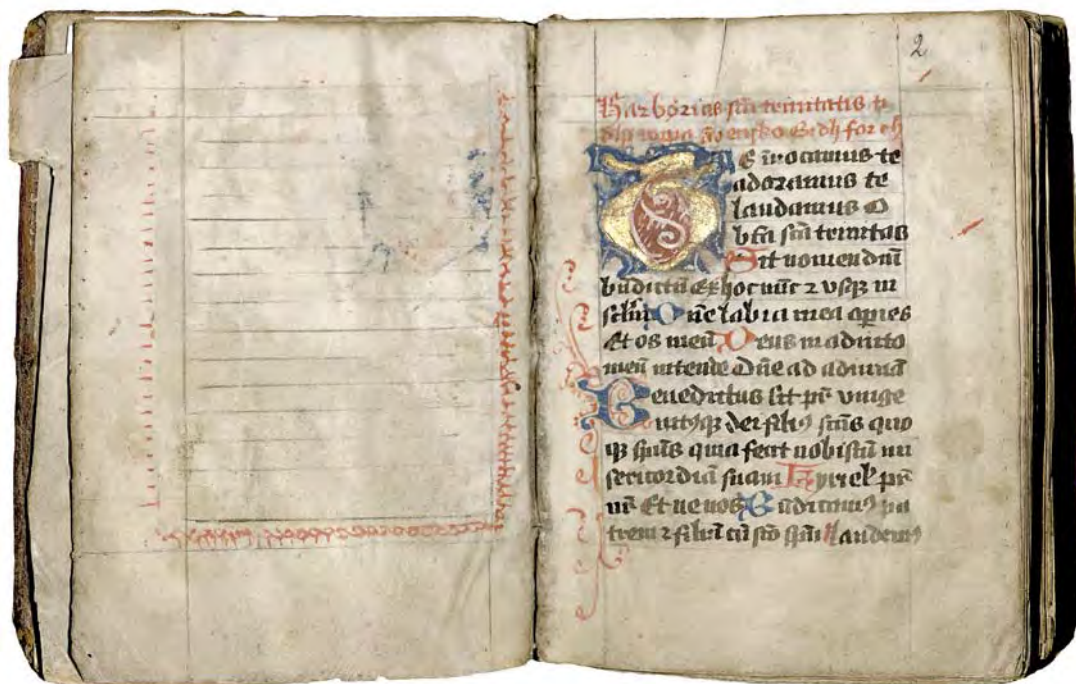 2
Har börias scī trinitatis ti
for
TE īuocamus te
adoramus te
laudamus O
bta scā trinitas
Sit nomen dnī
bndictū Ex hoc nūc ⁊ vsqꝫ in
sclm Dn̄e labia mea apries
Et os meū Deus in adiuto
meū intende Dn̄e ad adiuuā
Benedictus sit pr̄ vnige
nitꝰqꝫ dei filiꝰ scūs quo
qꝫ spūs quia fecit nobiscū mi
sericordiā suam Kyriel pr̄
nr̄ Et ne nos Bn̄dicamꝰ pa
trem ⁊ filiū cū sco spū laudemꝰ